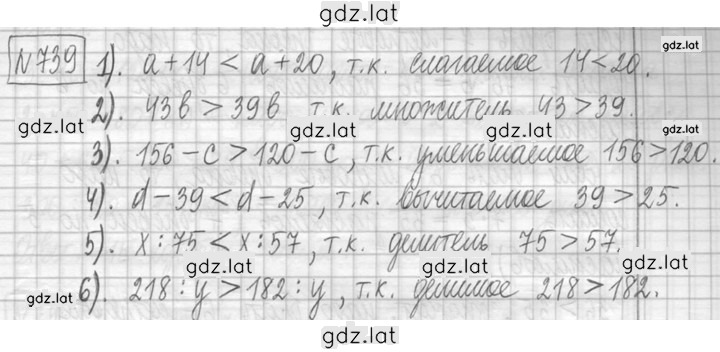 gdz.lat
№739 1). a+14 < a+20, т.к. слагаемое 14<20. gdz.lat
2). 43b > 39b т.к. множитель 43>39.
gdz.lat gdz.lat gdz.lat
3). 156-c>120-c, т.к. уменьшаемое 156>120.
4). d-39<d-25, т.к. вычитаемое 39>25.
gdz.lat gdz.lat
5). x:75<x:57, т.к. делитель 75>57.
gdz.lat gdz.lat gdz.lat
gdz.lat 6). 218:y>182:y, т.к. делимое 218>182.
gdz.lat